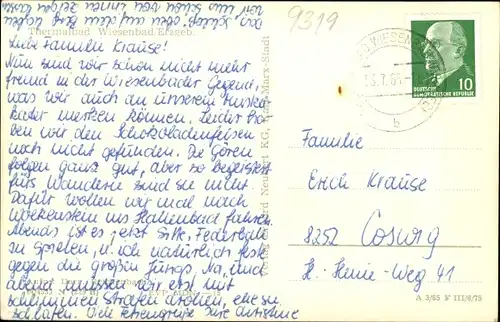 9319
Thermalbad Wiesenbad/Erzgeb.
Liebe Familie Krause!
Nun sind wir schon nicht mehr
fremd in der Wiesenbader Gegend,
was wir auch an unserem Muskel-
kater merken können. Leider ha-
ben wir den Schokoladenfelsen
noch nicht gefunden. Die Gören
folgen ganz gut, aber so begeistert
fürs Wandern sind sie nicht.
Dafür wollen wir mal nach
ins Hallenbad fahren.
Abends ist es jetzt Sitte, Federball
zu spielen, u. ich natürlich feste
gegen die großen Jungs. Na, und
abend müssen wir erst mit
schlimmen Strafen drohen, ehe sie
schlafen. Viele Feriengrüße Ihre
WIESENBAD
b
10
DEUTSCHE
DEMOKRATISCHE REPUBLIK
Familie
Erich Krause
8252 Coswig
H.-Heine-Weg 41
A 3/65 F III/6/75